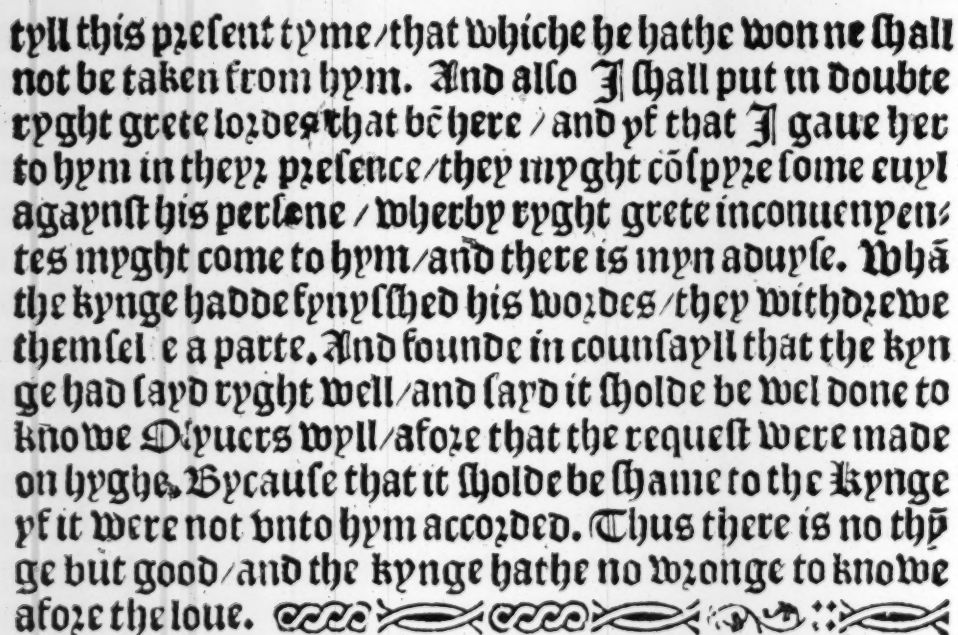 tyll this present tyme/that whiche he hathe wonne shall
not be taken from hym. And also I shall put in doubte
ryght grete lordes that bē here / and yf that I gaue her
to hym in theyr presence/they myght cōspyre some euyl
agaynst his persone / wherby ryght grete inconuenyen-
tes myght come to hym/and there is myn aduyse. Whā
the kynge hadde fynysshed his wordes/they withdrewe
themsel e a parte. And founde in counsayll that the kyn
ge had sayd ryght well/and sayd it sholde be wel done to
knowe Olyuers wyll/afore that the request were made
on hyghe. Bycause that it sholde be shame to the kynge
yf it were not vnto hym accorded. Thus there is no thȳ
ge but good/and the kynge hathe no wronge to knowe
afore the loue.